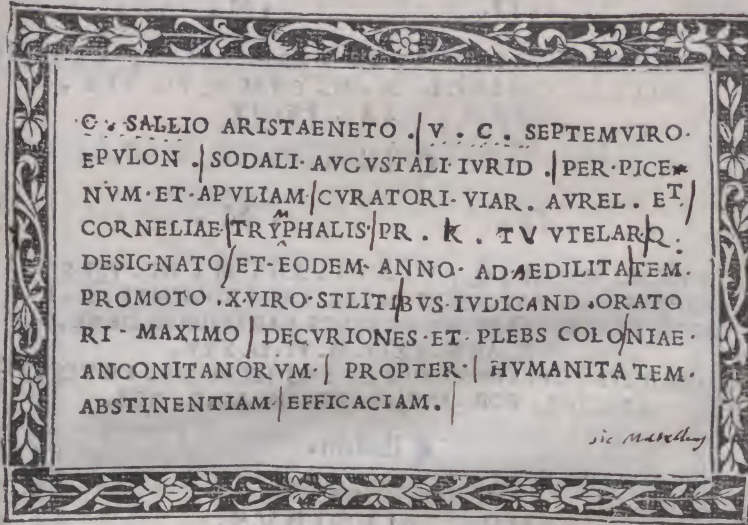 C . SALLIO ARISTAENETO . V . C . SEPTEMVIRO·
EPVLON . SODALI· AVGVSTALI· IVRID . PER· PICE
NVM· ET· APVLIAM CVRATORI· VIAR . AVREL . ET
CORNELIAE TRYMPHALIS PR . K . TV VTELAR Q .
DESIGNATO ET· EODEM· ANNO· AD AEDILITATEM·
PROMOTO . X·VIRO· STLITIBVS· IVDICAND . ORATO
RI· MAXIMO DECVRIONES· ET· PLEBS COLONIAE·
ANCONITANORVM· PROPTER· HVMANITATEM·
ABSTINENTIAM· EFFICACIAM .
sic